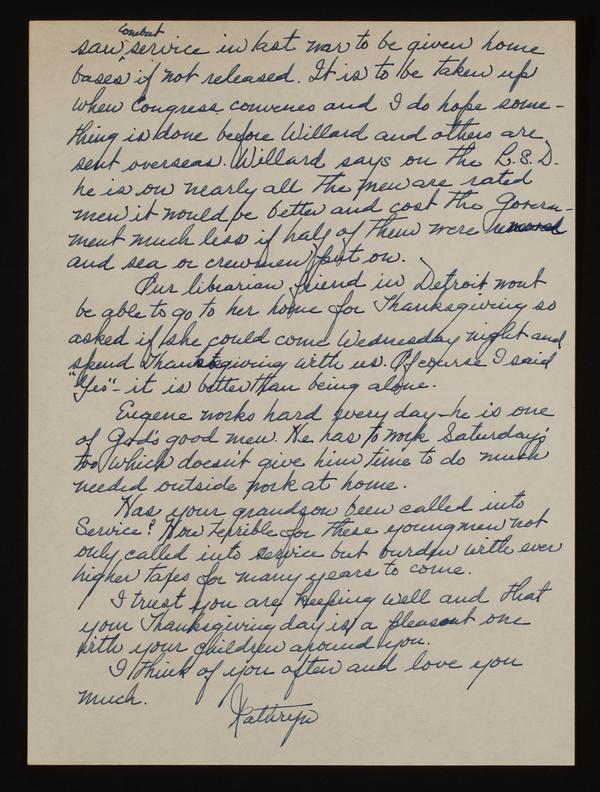 combat
saw service in last war to be given home
bases if not released. It is to be taken up
when Congress convenes and I do hope some-
thing is done before Willard and others are
sent overseas. Willard says on the L.S.D.
he is on nearly all the men are rated
men it would be better and cost the Govern-
ment much less if half of them were removed
and sea or crewmen put on.
Our librarian friend in Detroit wont
be able to go to her home for Thanksgiving so
asked if she could come Wednesday night and
spend Thanksgiving with us. Of course I said
"Yes" - it is better than being alone.
Eugene works hard every day - he is one
of God's good men. He has to work Saturday's
too which doesn't give him time to do much
needed outside work at home.
Has your grandson been called into
Service? How terrible for these young men not
only called into service but burden with ever
higher taxes for many years to come.
I trust you are keeping well and that
your Thanksgiving day is a pleasant one
with your children around you.
I think of you often and love you
much.
Kathryn